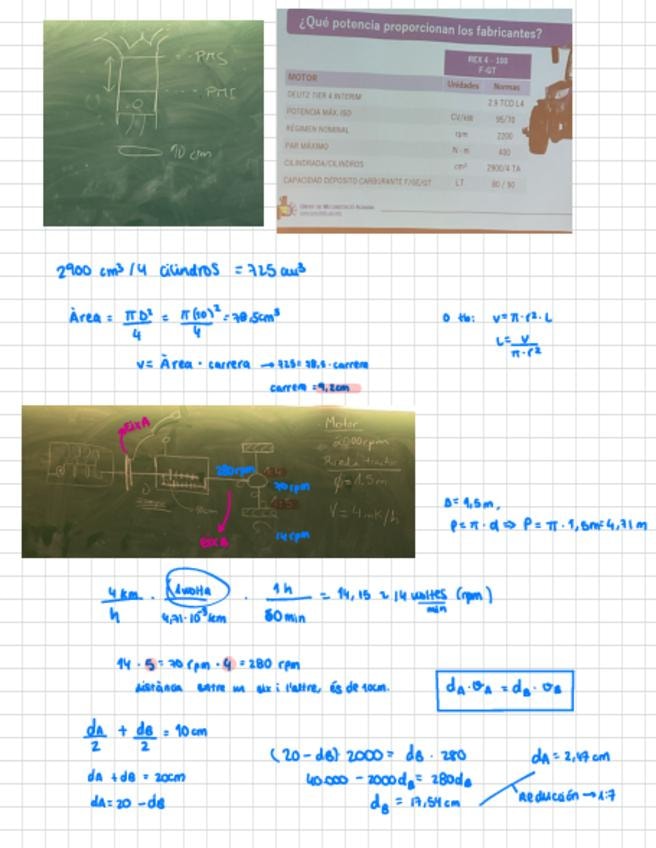 PMS
PMI
10 cm
¿Qué potencia proporcionan los fabricantes?
REX 4 - 100
F-GT
MOTOR Unidades Normas
DEUTZ TIER 4 INTERIM 2.9 TCD L4
POTENCIA MÁX. ISO CV/kW 95/70
RÉGIMEN NOMINAL rpm 2200
PAR MÁXIMO N - m 400
CILINDRADA/CILINDROS cm³ 2900/4 TA
CAPACIDAD DEPÓSITO CARBURANTE F/GE/GT LT 80 / 90
2900 cm³/4 cilindros = 725 cm³
Àrea = πD²/4 = π(10)²/4 = 78,5cm³
V = Àrea · carrera → 725 = 78,5 · carrera
carrera = 9,2cm
O tb: V = π·r²·L
L = V/π·r²
EIX A
280 rpm
70 rpm
EIX B
14 rpm
Motor
2000 rpm
Roda tractor
φ = 1.5m
V = 4 mk/h
D = 1,5 m,
P = π · d ⇒ P = π · 1,5m = 4,71 m
4 km/h · 1 volta/4,71·10⁻³ km · 1h/60 min = 14,15 ≈ 14 voltes/min (rpm)
14 · 5 = 70 rpm · 4 = 280 rpm
distància entre un eix i l'altre, és de 10cm.
dA · ωA = dB · ωB
dA/2 + dB/2 = 10 cm
dA + dB = 20cm
dA = 20 - dB
(20 - dB) 2000 = dB · 280
40.000 - 2000dB = 280dB
dB = 17,54 cm
dA = 2,47 cm
Reducción → 1:7